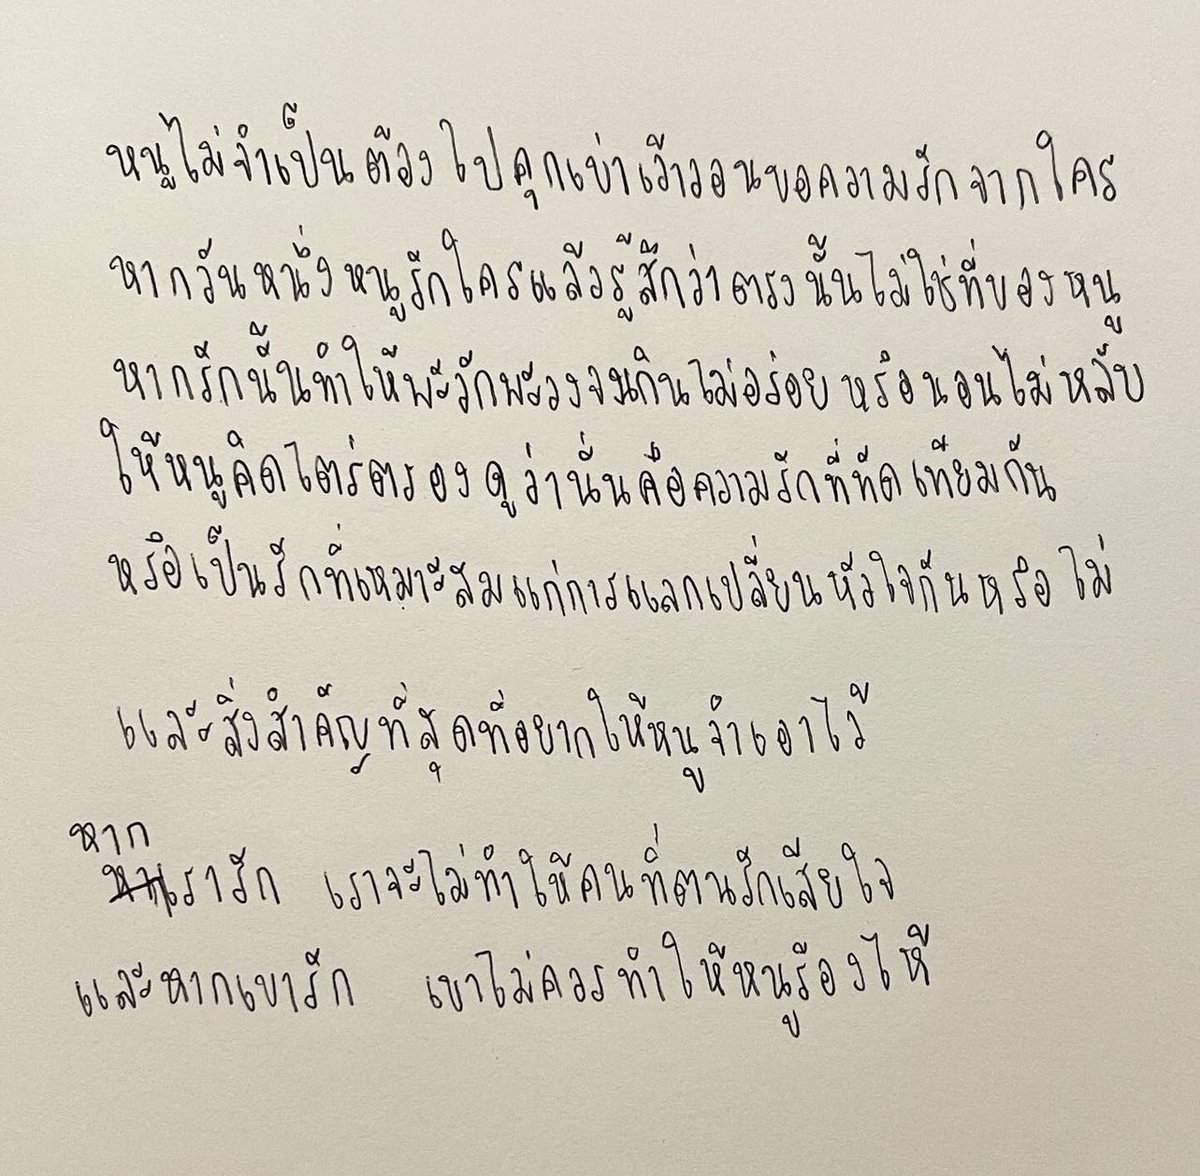 หนูไม่จำเป็นต้องไปคุกเข่าเว้าวอนขอความรักจากใคร
หากวันหนึ่งหนูรักใครแล้วรู้สึกว่าตรงนั้นไม่ใช่ที่ของหนู
หากรักนั้นทำให้พะวักพะวงจนกินไม่อร่อย หรือนอนไม่หลับ
ให้หนูคิดไตร่ตรองดูว่านั่นคือความรักที่ทัดเทียมกัน
หรือเป็นรักที่เหมาะสมแก่การแลกเปลี่ยนหัวใจกันหรือไม่
และสิ่งสำคัญที่สุดที่อยากให้หนูจำเอาไว้
หาก
เรารัก เราจะไม่ทำให้คนที่ตนรักเสียใจ
และหากเขารัก เขาไม่ควรทำให้หนูร้องไห้